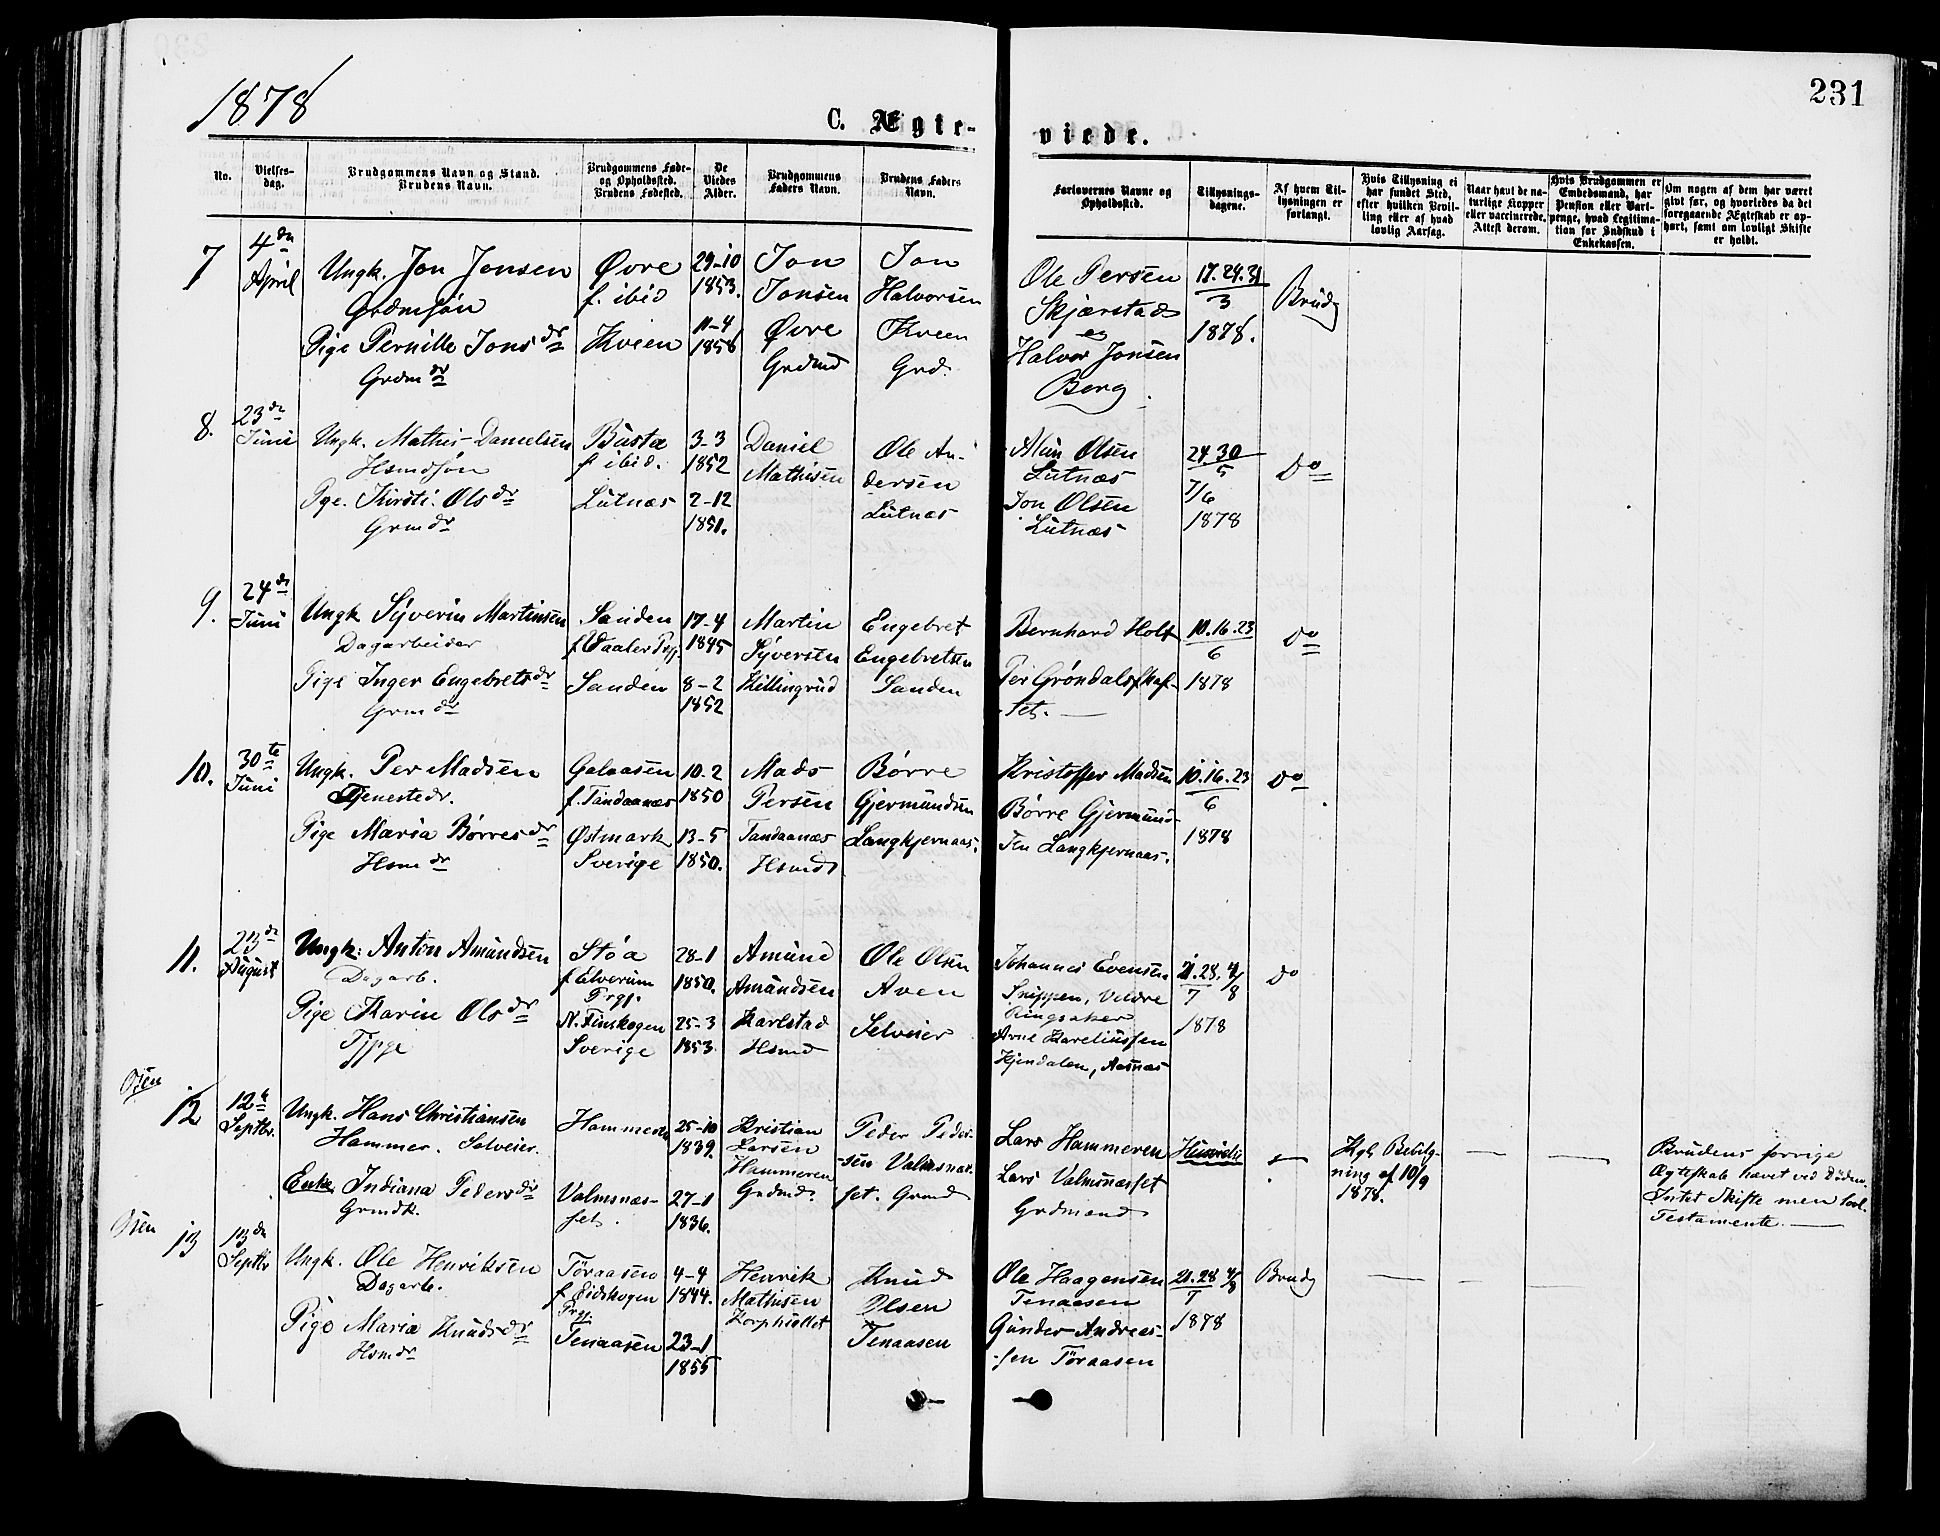 1878
231
C. Ægte-
viede.
No.
Vielses-
dag.
Brudgommens Navn og Stand.
Brudens Navn.
Brudgommens Føde-
og Opholdssted.
Brudens Fødested.
De
Viedes
Alder.
Brudgommens
Faders Navn.
Brudens Faders
Navn.
Forlovernes Navne og
Opholdssted.
Tillysnings-
dagene.
Af hvem Til-
lysningen er
forlangt.
Hvis Tillysning ei
har fundet Sted,
efter hvilken Bevil-
ling eller af hvad
lovlig Aarsag.
Naar havt de na-
turlige Kopper
eller vaccinerede.
Attest derom.
Hvis Brudgommen er
Embedsmand, har
Pension eller Vart-
penge, hvad Legitima-
tion for Indskud i
Enkekassen.
Om nogen af dem har været
givt før, og hvorledes da det
foregaaende Ægteskab er op-
hørt, samt om lovligt Skifte
er holdt.
7
4de
April
Ungk. Jon Jonsen
Grdmsøn
Pige Pernille Jonsdr
Grdmdr
Øvre
f. ibid
Kveen
29-10
1853.
11-4
1856
Jon
Jonsen
Øvre
Grdmd
Jon
Halvorsen
Kveen
Grd.
Ole Persen
Skjærstad
og
Halvor Jonsen
Berg
17. 24. 31
3
1878.
Brudg
8.
23de
Juni
Ungk. Mathis Danielsen
Hsmdsøn
Pge. Kirsti Olsdr
Grmdr
Basta
f ibid.
Lutnæs
3-3
1852
2-12
1851.
Daniel
Mathisen
Ole An-
dersen
Lutnæs
Olsen
Lutnæs
Jon Olsen
Lutnæs
24 30
5
7/6
1878
Do
9.
24de
Juni
Ungk Syverin Martinsen
Dagarbeider
Pige Inger Engebretsdr
Grmdr
Sanden
f Vaaler Prgj.
Sanden
17-4
1845
8-2
1852
Martin
Syversen
Killingrud
Engebret
Engebretsen
Sanden
Bernhard Holt
Per Grøndalsskaf-
tet.
10. 16. 23
6
1878
Do
10.
30te
Juni
Ungk. Per Madsen
Tjenestedr.
Pige Maria Børresdr
Hsmdr
Galaasen
f. Tandaanæs
Østmark
Sverige
10-2
1850
13-5
1850.
Mads
Persen
Tandaanæs
Hsmd
Børre
Gjermundsen
Langkjernaas.
Kristoffer Madsen
Børre Gjermund-
sen Langkjernaas.
10. 16. 23
6
1878
Do
11.
23de
August
Ungk: Anton Amundsen
Dagarb.
Pige Karin Olsdr
Tjpge
Støa
f Elverum
Prgj.
N. Finskogen
Sverige
28-1
1850.
25-3
1853.
Amund
Amundsen
Karlstad
Hsmd
Ole Olsen
Aven
Selveier
Johannes Evensen
Snippen, Veldre
Ringsaker
Arne Kareliussen
Kjendalen, Aasnæs
21. 28. 4/8
7
1878
Do
Osen
12
12te
Septbr.
Ungk. Hans Christiansen
Hammer. Selveier.
Enke Indiana Pedersdr
Grmdk.
Hammeren
Valmsnæs-
set.
25-10
1839.
27-1
1836.
Kristian
Larsen
Hammeren
Grdmd.
Peder Peder-
sen Valmsnæs-
set. Grmd
Lars Hammeren
Lars Valmsnæsset
Grdmænd
Kgl Bevilg-
ning af 10/9
1878.
Brudens forrige
Ægteskab hævet ved Døden.
Intet Skifte men lovl.
Testamente.
Osen
13
13de
Septbr
Ungk. Ole Henriksen
Dagarb.
Pige Maria Knudsdr
Hsmdr
Tøraasen
f Eidskogen
Prgj.
Tenaasen
4-4
1844.
23-1
1855
Henrik
Mathisen
Knud
Olsen
Tenaasen
Ole Haagensen
Tenaasen
Gunder Andreas-
sen Tøraasen
21. 28 4/8
7
1878
Brudg